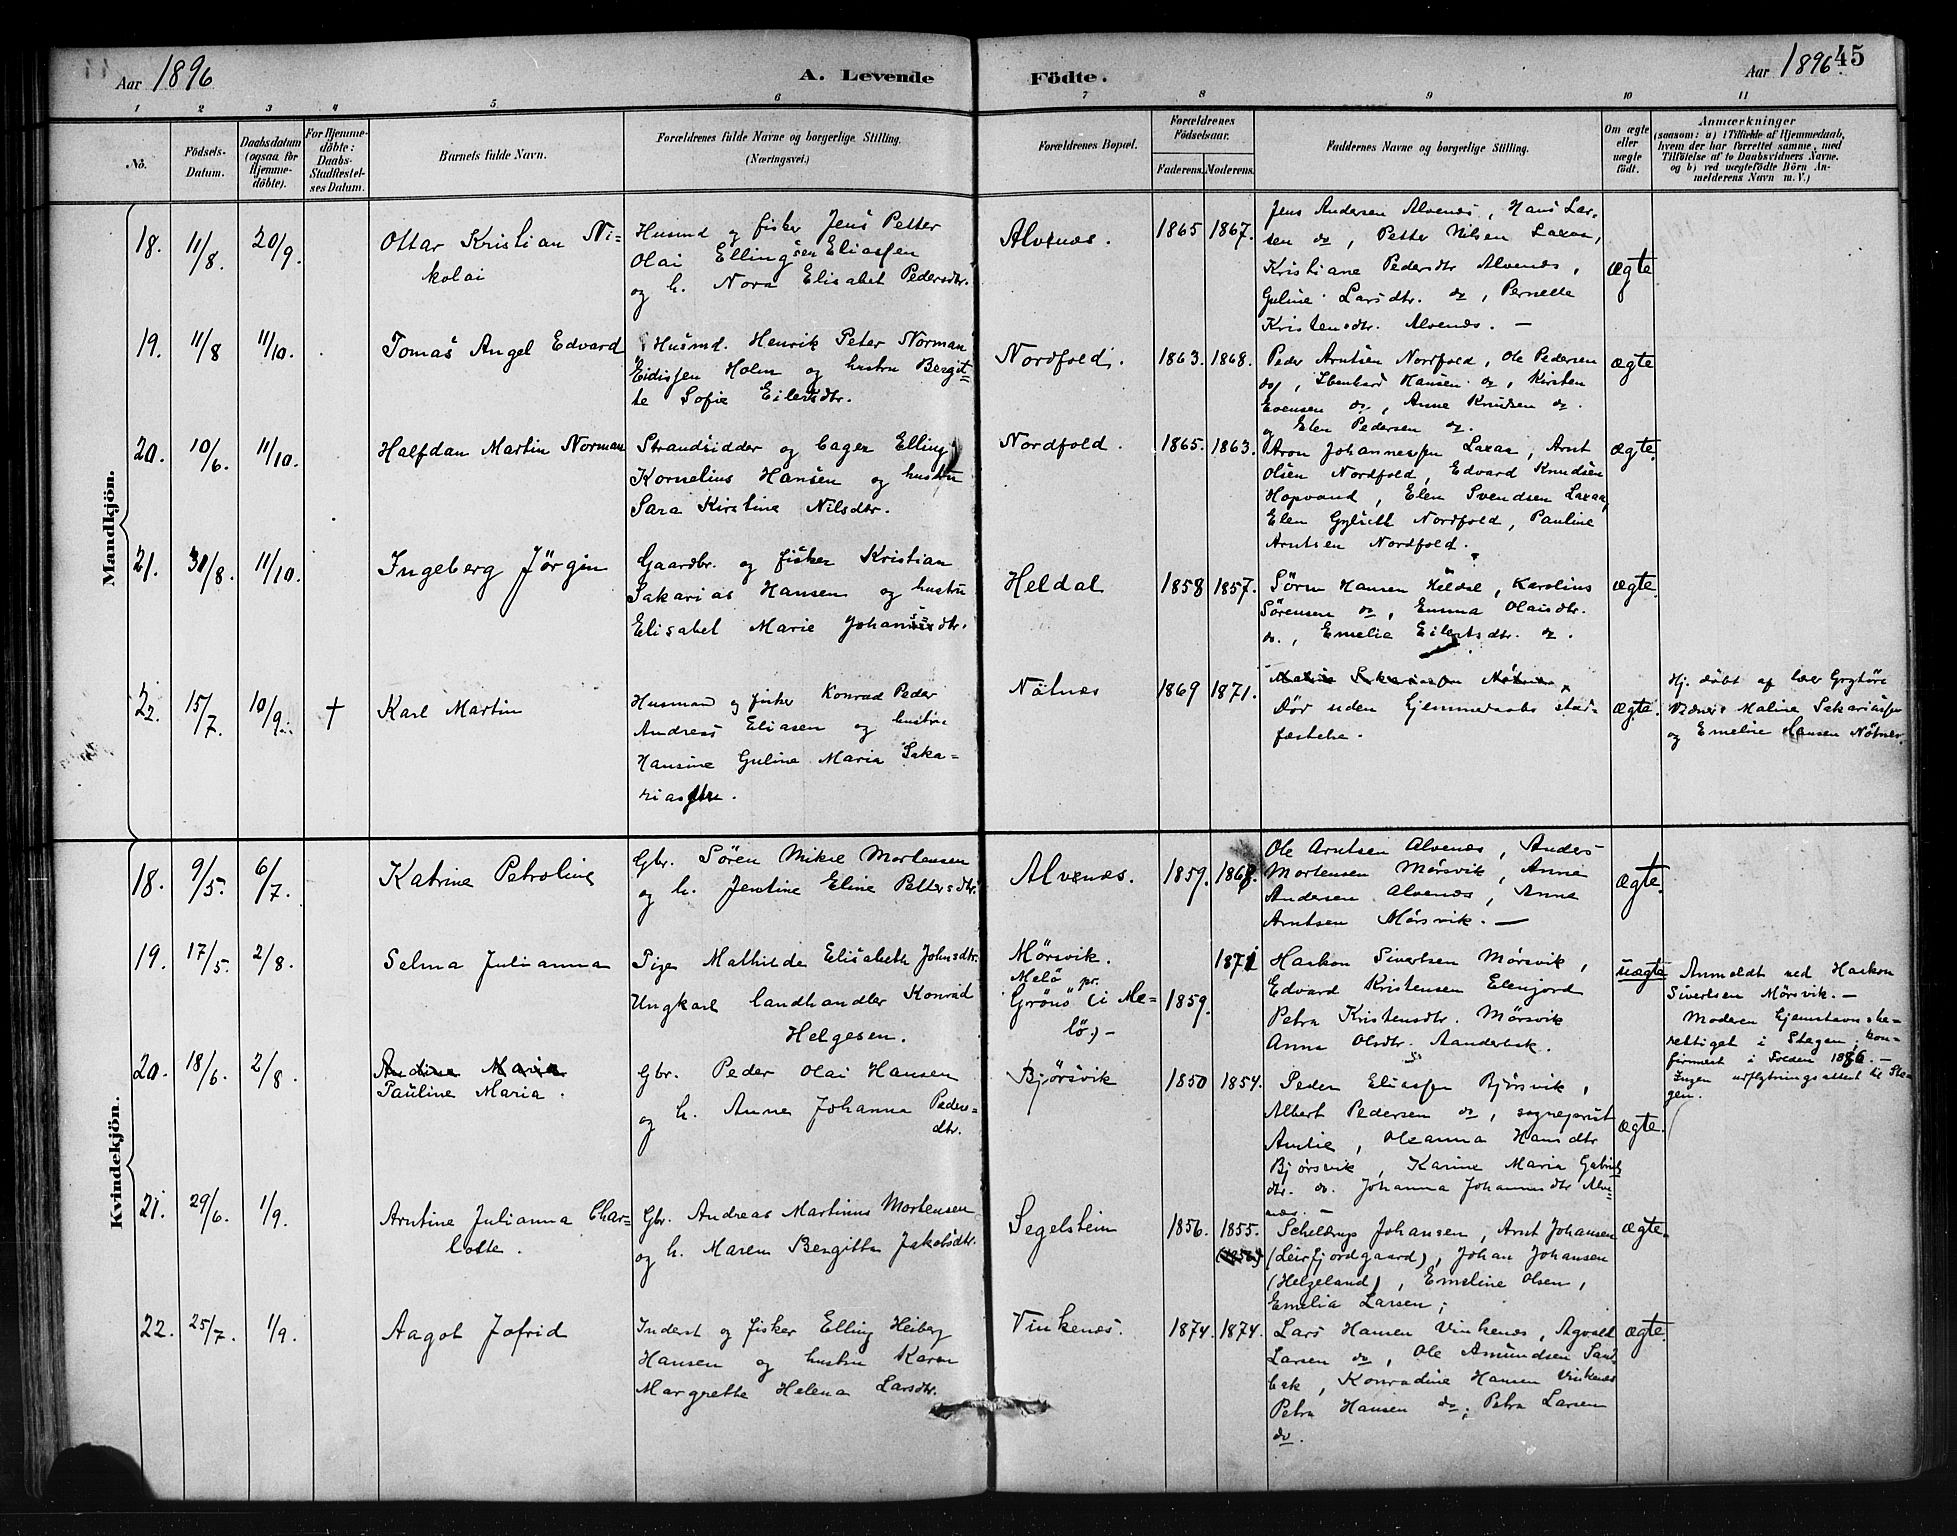 Aar 1896
A. Levende
Födte.
Aar 1896.
45
1 2 3 4 5 6 7 8 9 10 11
No.
Födsels-
Datum.
Daabsdatum
(ogsaa for
Hjemme-
döbte).
For Hjemme-
döbte:
Daabs-
Stadfæstel-
ses Datum.
Barnets fulde Navn.
Forældrenes fulde Navne og borgerlige Stilling.
(Næringsvei.)
Forældrenes Bopæl.
Forældrenes
Födselsaar.
Faderens. Moderens.
Faddernes Navne og borgerlige Stilling.
Om ægte
eller
uægte
födt.
Anmærkninger
(saasom: a) i Tilfælde af Hjemmedaab,
hvem der har forrettet samme, med
Tilföielse af to Daabsvidners Navne.
og b) ved uægtefödte Börn An-
melderens Navn m. V.)
Mandkjön.
18. 11/8. 20/9.
Ottar Kristian Ni-
kolai
Husmd og fisker Jens Petter
Olai Ellingsen Eliassen
og h. Nora Elisabet Pedersdtr.
Alvenæs.
1865 1867.
Jens Andersen Alvenæs, Hans Lar-
sen do, Petter Nilsen Laxaa,
Kristiane Pedersdtr Alvenæs,
Guline Larsdtr. do, Pernelle
Kristensdtr. Alvenæs. —
ægte
19. 11/8 11/10.
Tomas Angel Edvard
Husmd. Henrik Peter Norman
Eidissen Holm og hustru Bergit-
te Sofie Eilertsdtr.
Nordfold.
1863. 1868.
Peder Arntsen Nordfold, Ole Pedersen
do, Ebenhard Hansen do, Kirsten
Evensen do, Anne Knudsen do.
og Elen Pedersen do.
ægte
20. 10/6. 11/10.
Halfdan Martin Norman
Strandsidder og bager Elling
Kornelius Hansen og hustru
Sara Kirstine Nilsdtr.
Nordfold.
1865. 1863.
Aron Johannessen Laxaa, Arnt
Olsen Nordfold, Edvard Knudsen
Hopvand, Elen Svendsen Laxaa,
Elen Nordfold, Pauline
Arntsen Nordfold.
ægte.
21. 31/8. 11/10.
Ingeberg Jörgen
Gaardbr. og fisker Kristian
Sakarias Hansen og hustru
Elisabet Marie Johansdtr.
Heldal
1858 1857.
Sörn Hansen Heldal, Karolius
Sörensen do, Emma Olaisdtr.
do., Emelie Eilertsdtr. do.
ægte.
22. 15/7. 10/9. †
Karl Martin
Husmand og fisker Konrad Peder
Andreas Eliasen og hustru
Hansine Guline Maria Saka-
riasdtr.
Nötnæs
1869 1871.
Maline Sakariassen Nötnæs
Dör uden hjemmedaabs stad-
fæstelse.
ægte.
Hj. döbt af lær Grytöre
Vidner: Maline Sakariassen
og Emelie Hansen Nötnes.
Kvindekjön.
18. 9/5. 6/7.
Katrine Petroline
Gbr. Sören Mikal Mortensen
og h. Jentine Eline Pettersdtr.
Alvenæs.
1859. 1868.
Ole Arntsen Alvenæs, Anders
Mortensen Mörsvik, Anne
Andersen Alvenæs, Anna
Arntsen Mörsvik. —
ægte.
19. 17/5. 2/8.
Selma Julianna
Pige Mathilde Elisabeth Johnsdtr.
Ungkarl landhandler Konrad
Helgesen.
Mörsvik.
Melö pr.
Grönö (i Me-
lö) -
1859. 1871
Haakon Sivertsen Mörsvik,
Edvard Kristensen Elenjord
Petra Kristensdtr. Mörsvik
Anna Olsdtr. Aanderbak.
uægte
Anmeldt ved Haakon
Sivertsen Mörsvik. —
Moderen hjemstavnsbe-
rettiget i Stegen, kon-
firmert i Freden 1886. —
Ingen udflytningsattest til Ste-
gen.
20. 18/6. 2/8.
Andrea Maria
Pauline Maria.
Gbr. Peder Olai Hansen
og h. Anne Johanna Peders-
dtr.
Bjørsvik
1850 1854.
Peder Eliassen Bjørsvik,
Albert Pedersen do, sogneprest
Antie, Oleanna Hansdtr
Bjørsvik, Karine Maria Gabriels
dtr. do. Johanna Johannesdtr Alve-
næs. —
ægte.
21. 29/6. 1/9.
Arntine Julianna Char-
lotte.
Gbr. Andreas Martinus Mortensen
og h. Maren Bergitta Jakobsdtr.
Segelsteim
1856. 1855.
(1856)
Scheldrup Johansen, Arnt Johansen
(Leirfjordgaard), Johan Johansen
(Helgeland), Emeline Olsen,
Emelia Larsen;
ægte.
22. 25/7. 1/9.
Aagot Jofrid
Inderst og fisker Elling Heiberg
Hansen og hustru Karen
Margrethe Helena Larsdtr.
Vinkenæs.
1874. 1874.
Lars Hansen Vinkenæs, Agvald
Larsen do, Ole Amundsen Sand-
bak, Konradine Hansen Vinkenæs
Petra Hansen do; Petra Larsen
do.
ægte.